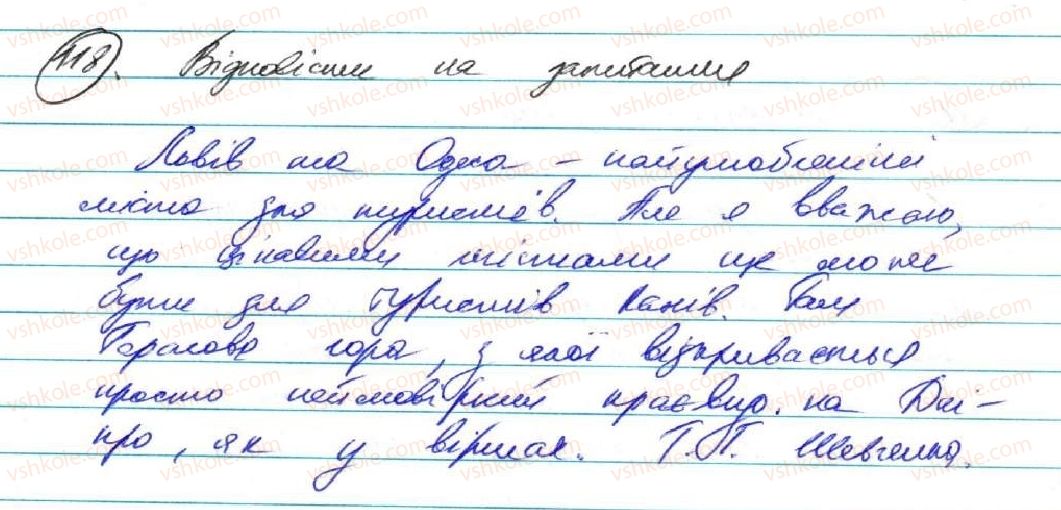 118. Відповісти на запитання
Львів та Одеса – найулюбленіші
міста для туристів. Але я вважаю,
що цікавими містами ще може
бути для туристів Канів. Там
Тарасова гора, з якої відкривається
просто неймовірний краєвид. на Дні-
про, як у віршах. Т.Г. Шевченка.